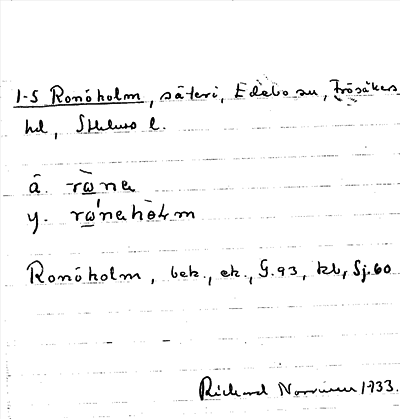 1-5 Ronöholm, säteri, Edebo sn, Frösåkers
hd, Sthlms l.
ä. rana
y. ranahòlm
Ronöholm, bek., ek., G.93, kb, Sj.60
Richard 1933.